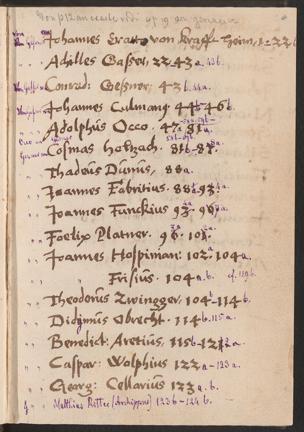 Johannes Crato von Krafftheim, 1-22 b
Achilles Gasser, 22-43 a. 43 b.
Conrad: Gesner, 43 b. 44 a.
Johannes Culmang 44 b 46 b
Adolphus Occo. 47 a 81 a
Cosmas Holtzach. 81 b-87.
Thadeus Dunus, 88 a.
Joannes Fabritius. 88 b 93 a.
Joannes Funckius 93. 96 a.
Foelix Platner. 96. 101.
Joannes Hospiman: 102. 104 a.
Frisius. 104 a. b. cf. 129 b.
Theodorus Zwingger. 104 b-114 b.
Didymus Obrecht. 114 b. 115 a.
Benedict: Aretius, 115 b-121 a.
Caspar: Wolphius 122 a-123 a.
Georg: Cellarius 123 a. b.
Matthias Ritter (Archippus) 123 b-124 b.